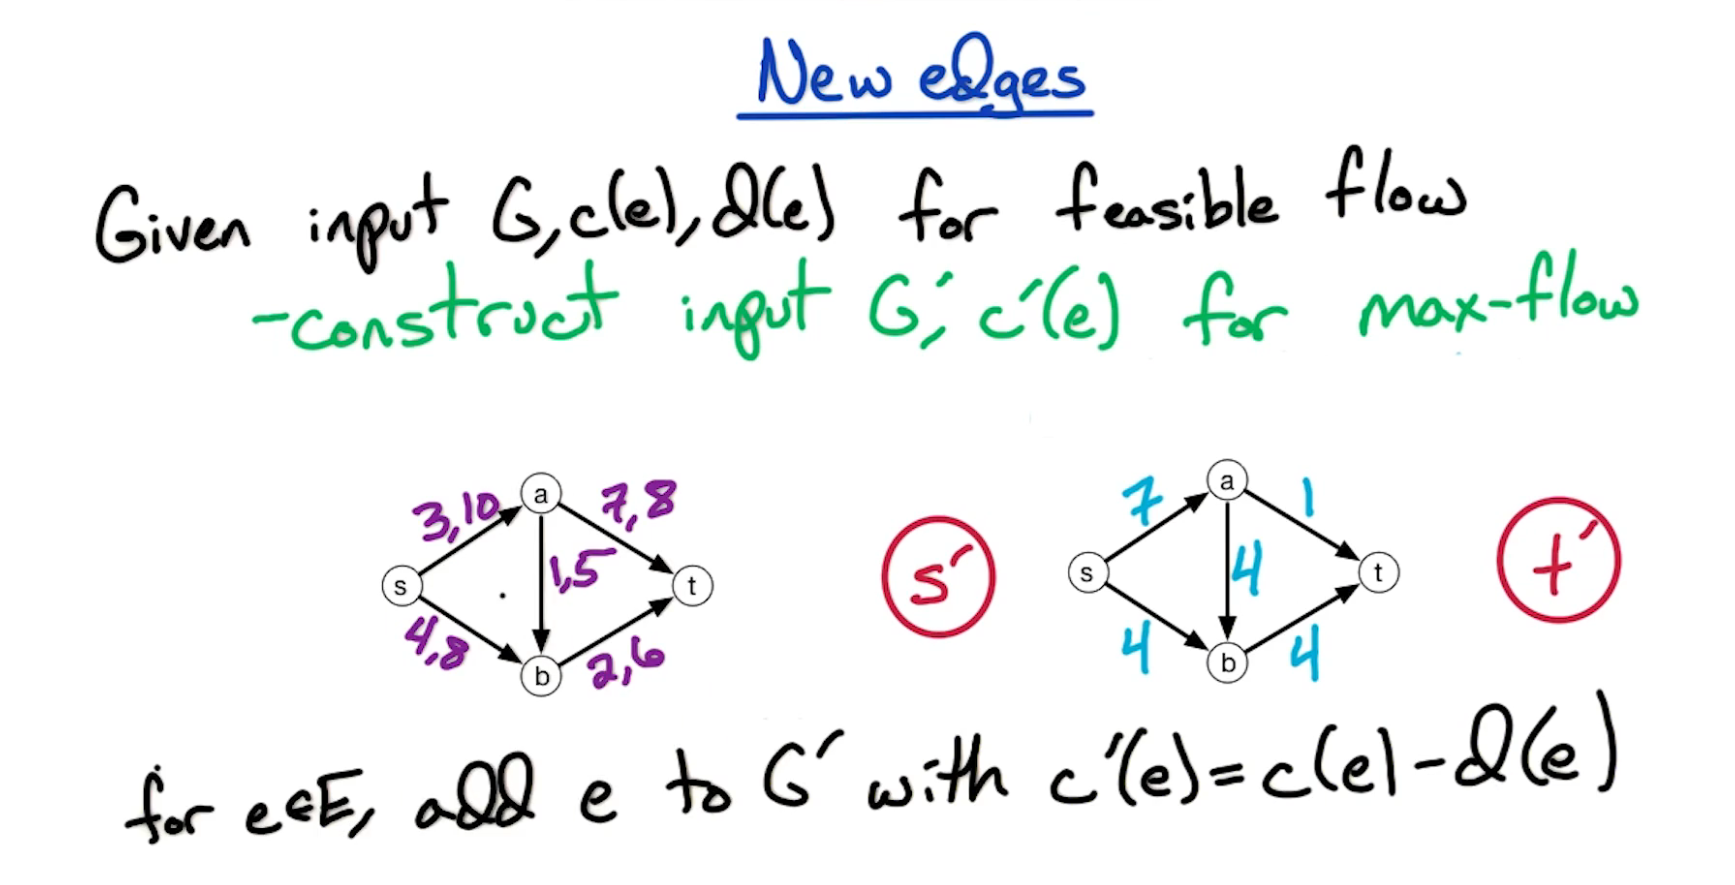 New edges
Given input G, c(e), d(e) for feasible flow
-construct input G', c'(e) for max-flow
a
a
3,10
7,8
7
1
s
1,5
t
s'
s
4
t
t'
4,8
b
2,6
4
b
4
for e∈E, add e to G' with c'(e)=c(e)-d(e)